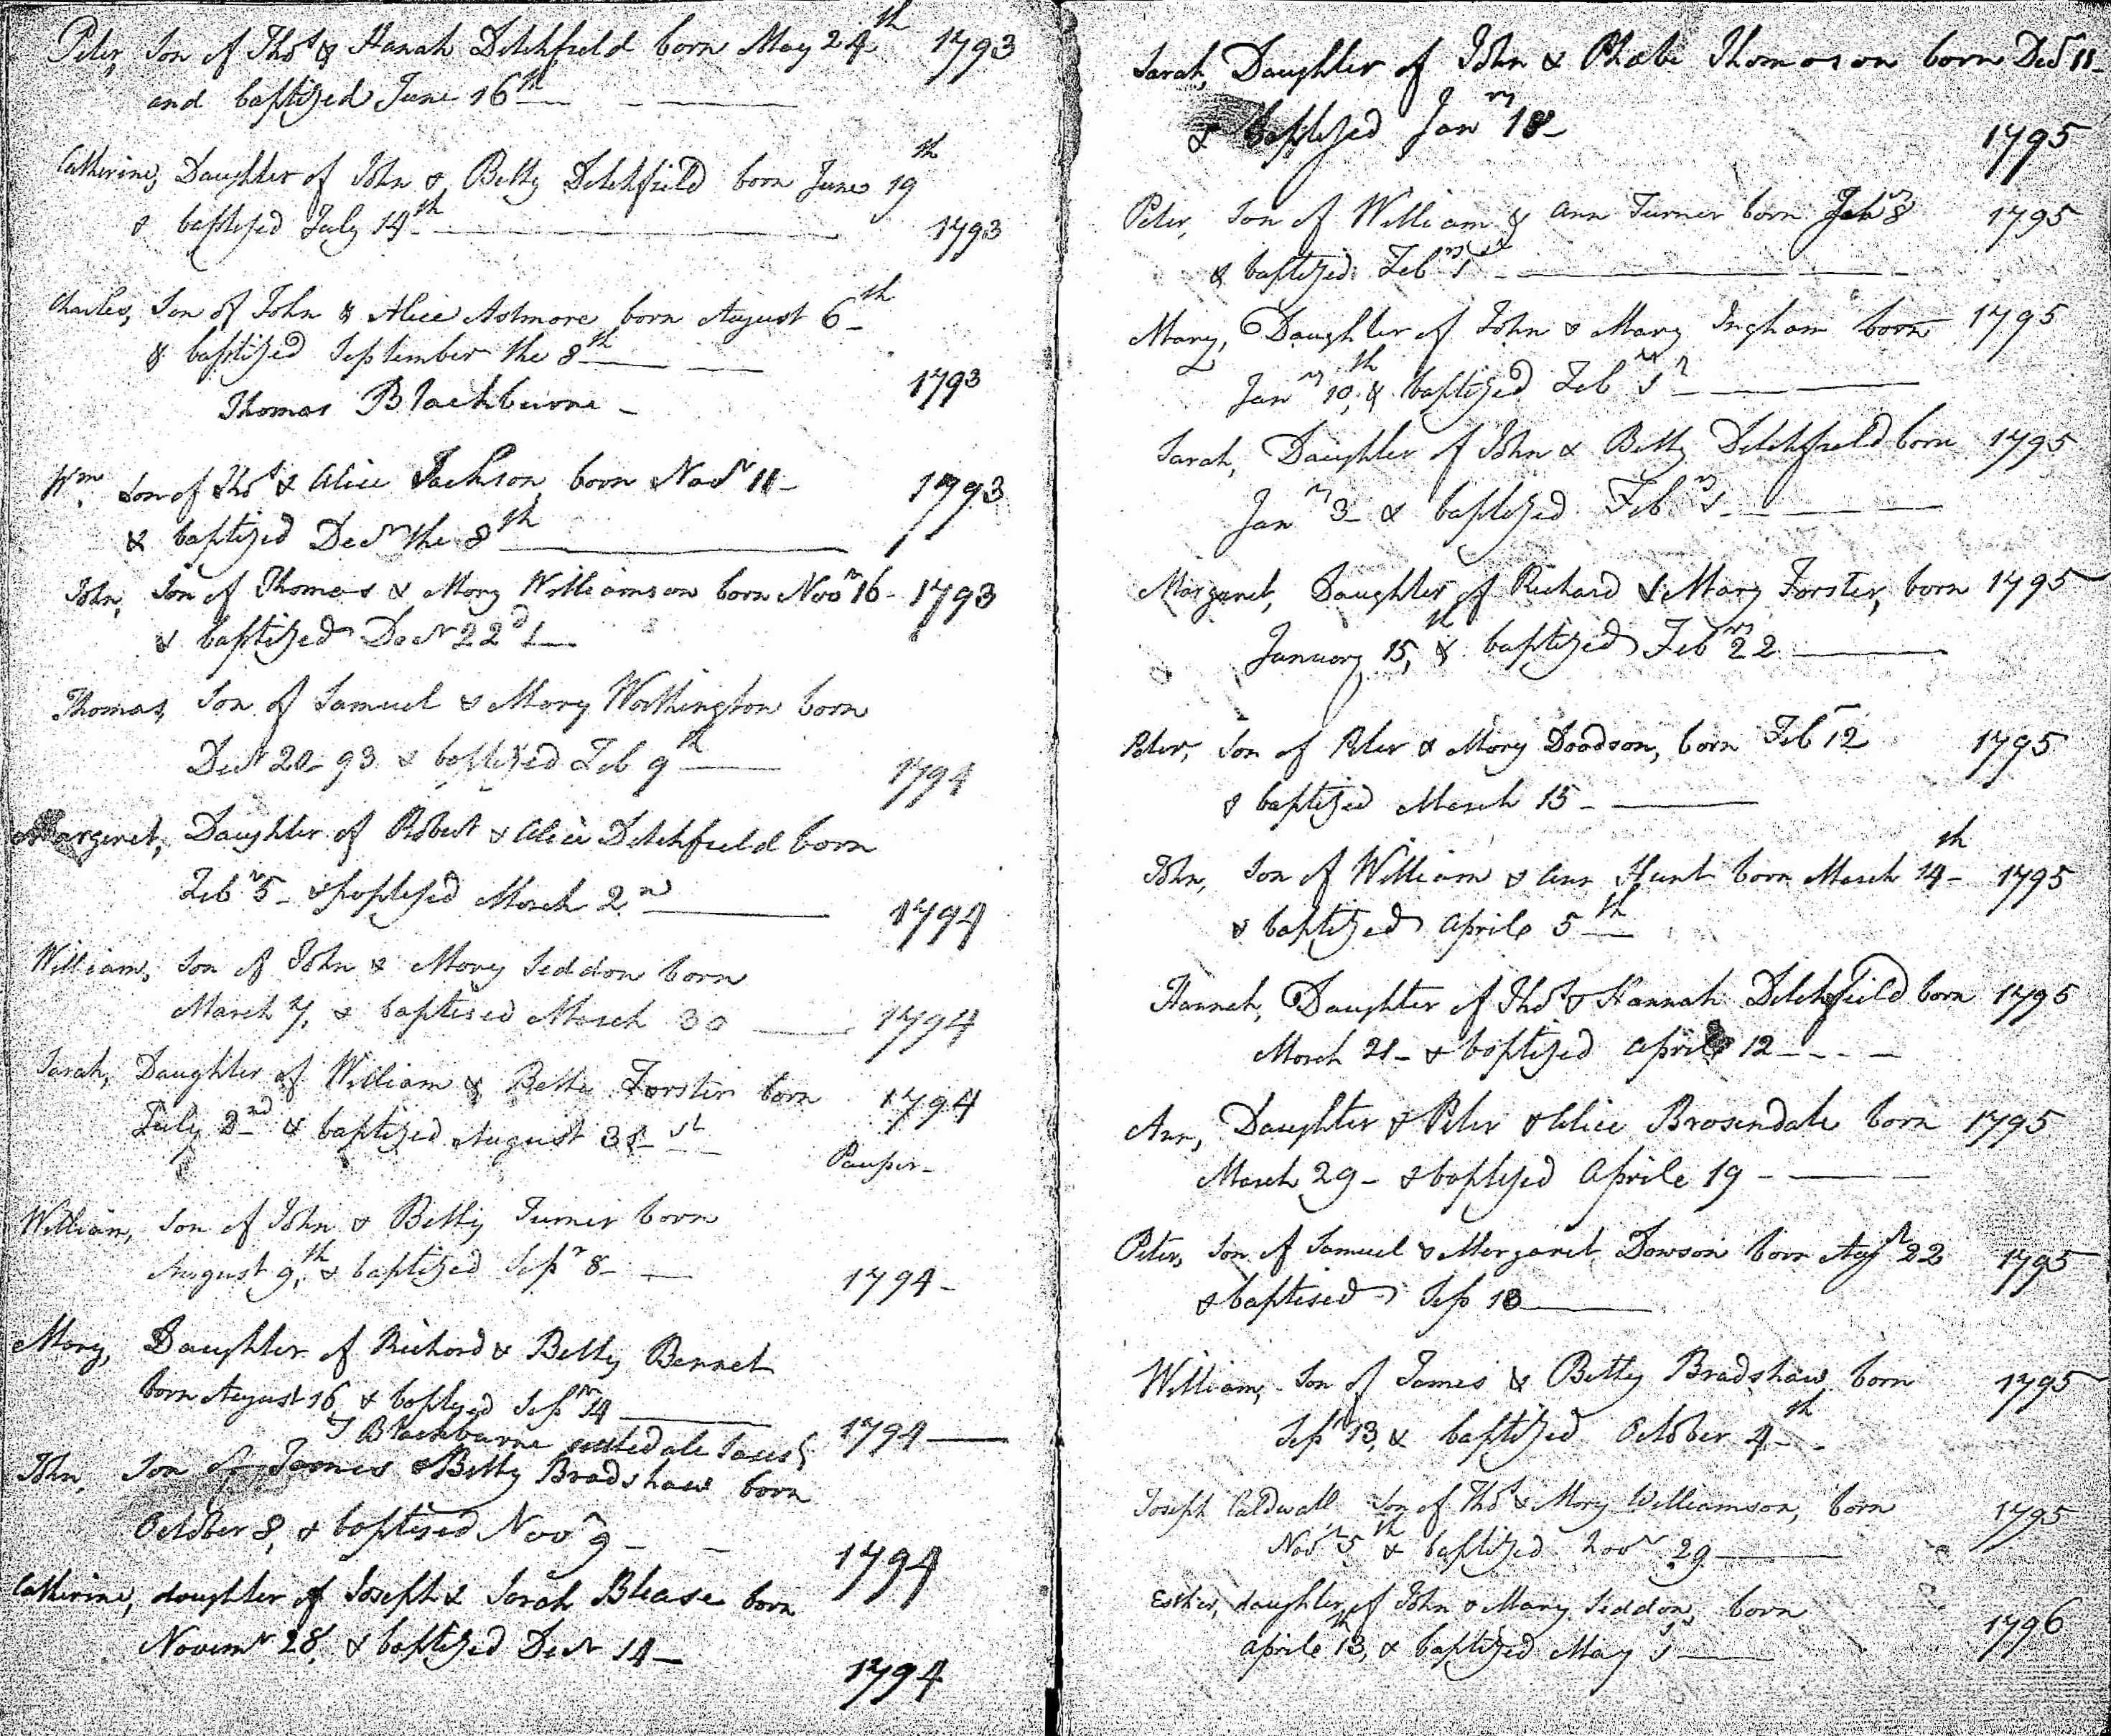 Peter, Son of Thos & Hanah Ditchfield born May 24th 1793
and baptized June 16th
Catherine, Daughter of John & Betty Ditchfield born June 19th
& baptized July 14th 1793
Charles, Son of John & Alice Astmore born August 6th
& baptized September the 8th 1793
Thomas Blackburne
Wm Son of Thos & Alice Jackson, born Novr 11 1793
& baptized Decr the 8th
John, Son of Thomas & Mary Williamson born Novr 16 1793
& baptized Decr 22d
Thomas, Son of Samuel & Mary Worthington born
Decr 20 93 & baptized Feb 9th 1794
Margaret, Daughter of Robert & Alice Ditchfield born
Febr 5 & baptized March 2nd 1794
William, Son of John & Mary Seddon born
March 7, & baptised March 30 1794
Sarah, Daughter of William & Betty Forster born 1794
July 2nd & baptized August 31st Pauper
William, Son of John & Betty Turner born
August 9th, & baptized Sepr 8 1794
Mary, Daughter of Richard & Betty Bennet
born August 16 & baptized Sepr 14 1794
T Blackburne
John, Son of James & Betty Bradshaw born
October 8, & baptised Novr 9 1794
Catherine, daughter of Joseph & Sarah Blease born
Novemr 28, & baptized Decr 14 1794
Sarah, Daughter of John & Phœbe Thomason born Decr 11
& baptized Janry 18 1795
Peter, Son of William & Ann Turner born 8 1795
& baptized Febry 1st
Mary, Daughter of John & Mary Ingham born 1795
Janry 10th, & baptized Febry 1st
Sarah, Daughter of John & Betty Ditchfield born 1795
Janry 3 & baptized Febry 1
Margaret, Daughter of Richard & Mary Forster, born 1795
January 15th, & baptized Febry 22
Peter, Son of Peter & Mary Doodson, born Feb 12 1795
& baptized March 15
John, Son of William & Ann Hunt born March 14th 1795
& baptized Aprile 5th
Hannah, Daughter of Thos & Hannah Ditchfield born 1795
March 21 & baptized Aprile 12
Ann, Daughter of Peter & Alice Brosendale born 1795
March 29 & baptized Aprile 19
Peter, Son of Samuel & Margaret Dowson born Augst 22 1795
& baptised Sep 13
William, Son of James & Betty Bradshaw born 1795
Sepr 13, & baptized October 4th
Joseph Caldwall Son of Thos & Mary Williamson, born 1795
Novr 5th & baptized Novr 29
Esther, daughter of John & Mary Seddon, born 1796
Aprile 13, & baptized May 1st